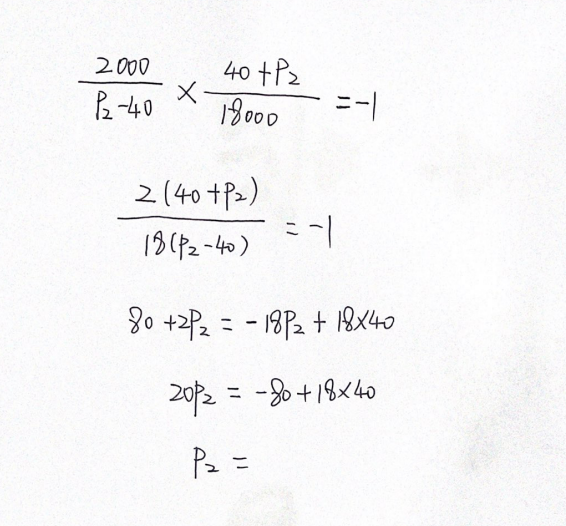 2000/(P₂-40) × (40+P₂)/18000 = -1
2(40+P₂)/18(P₂-40) = -1
80+2P₂ = -18P₂+18×40
20P₂ = -80+18×40
P₂ =